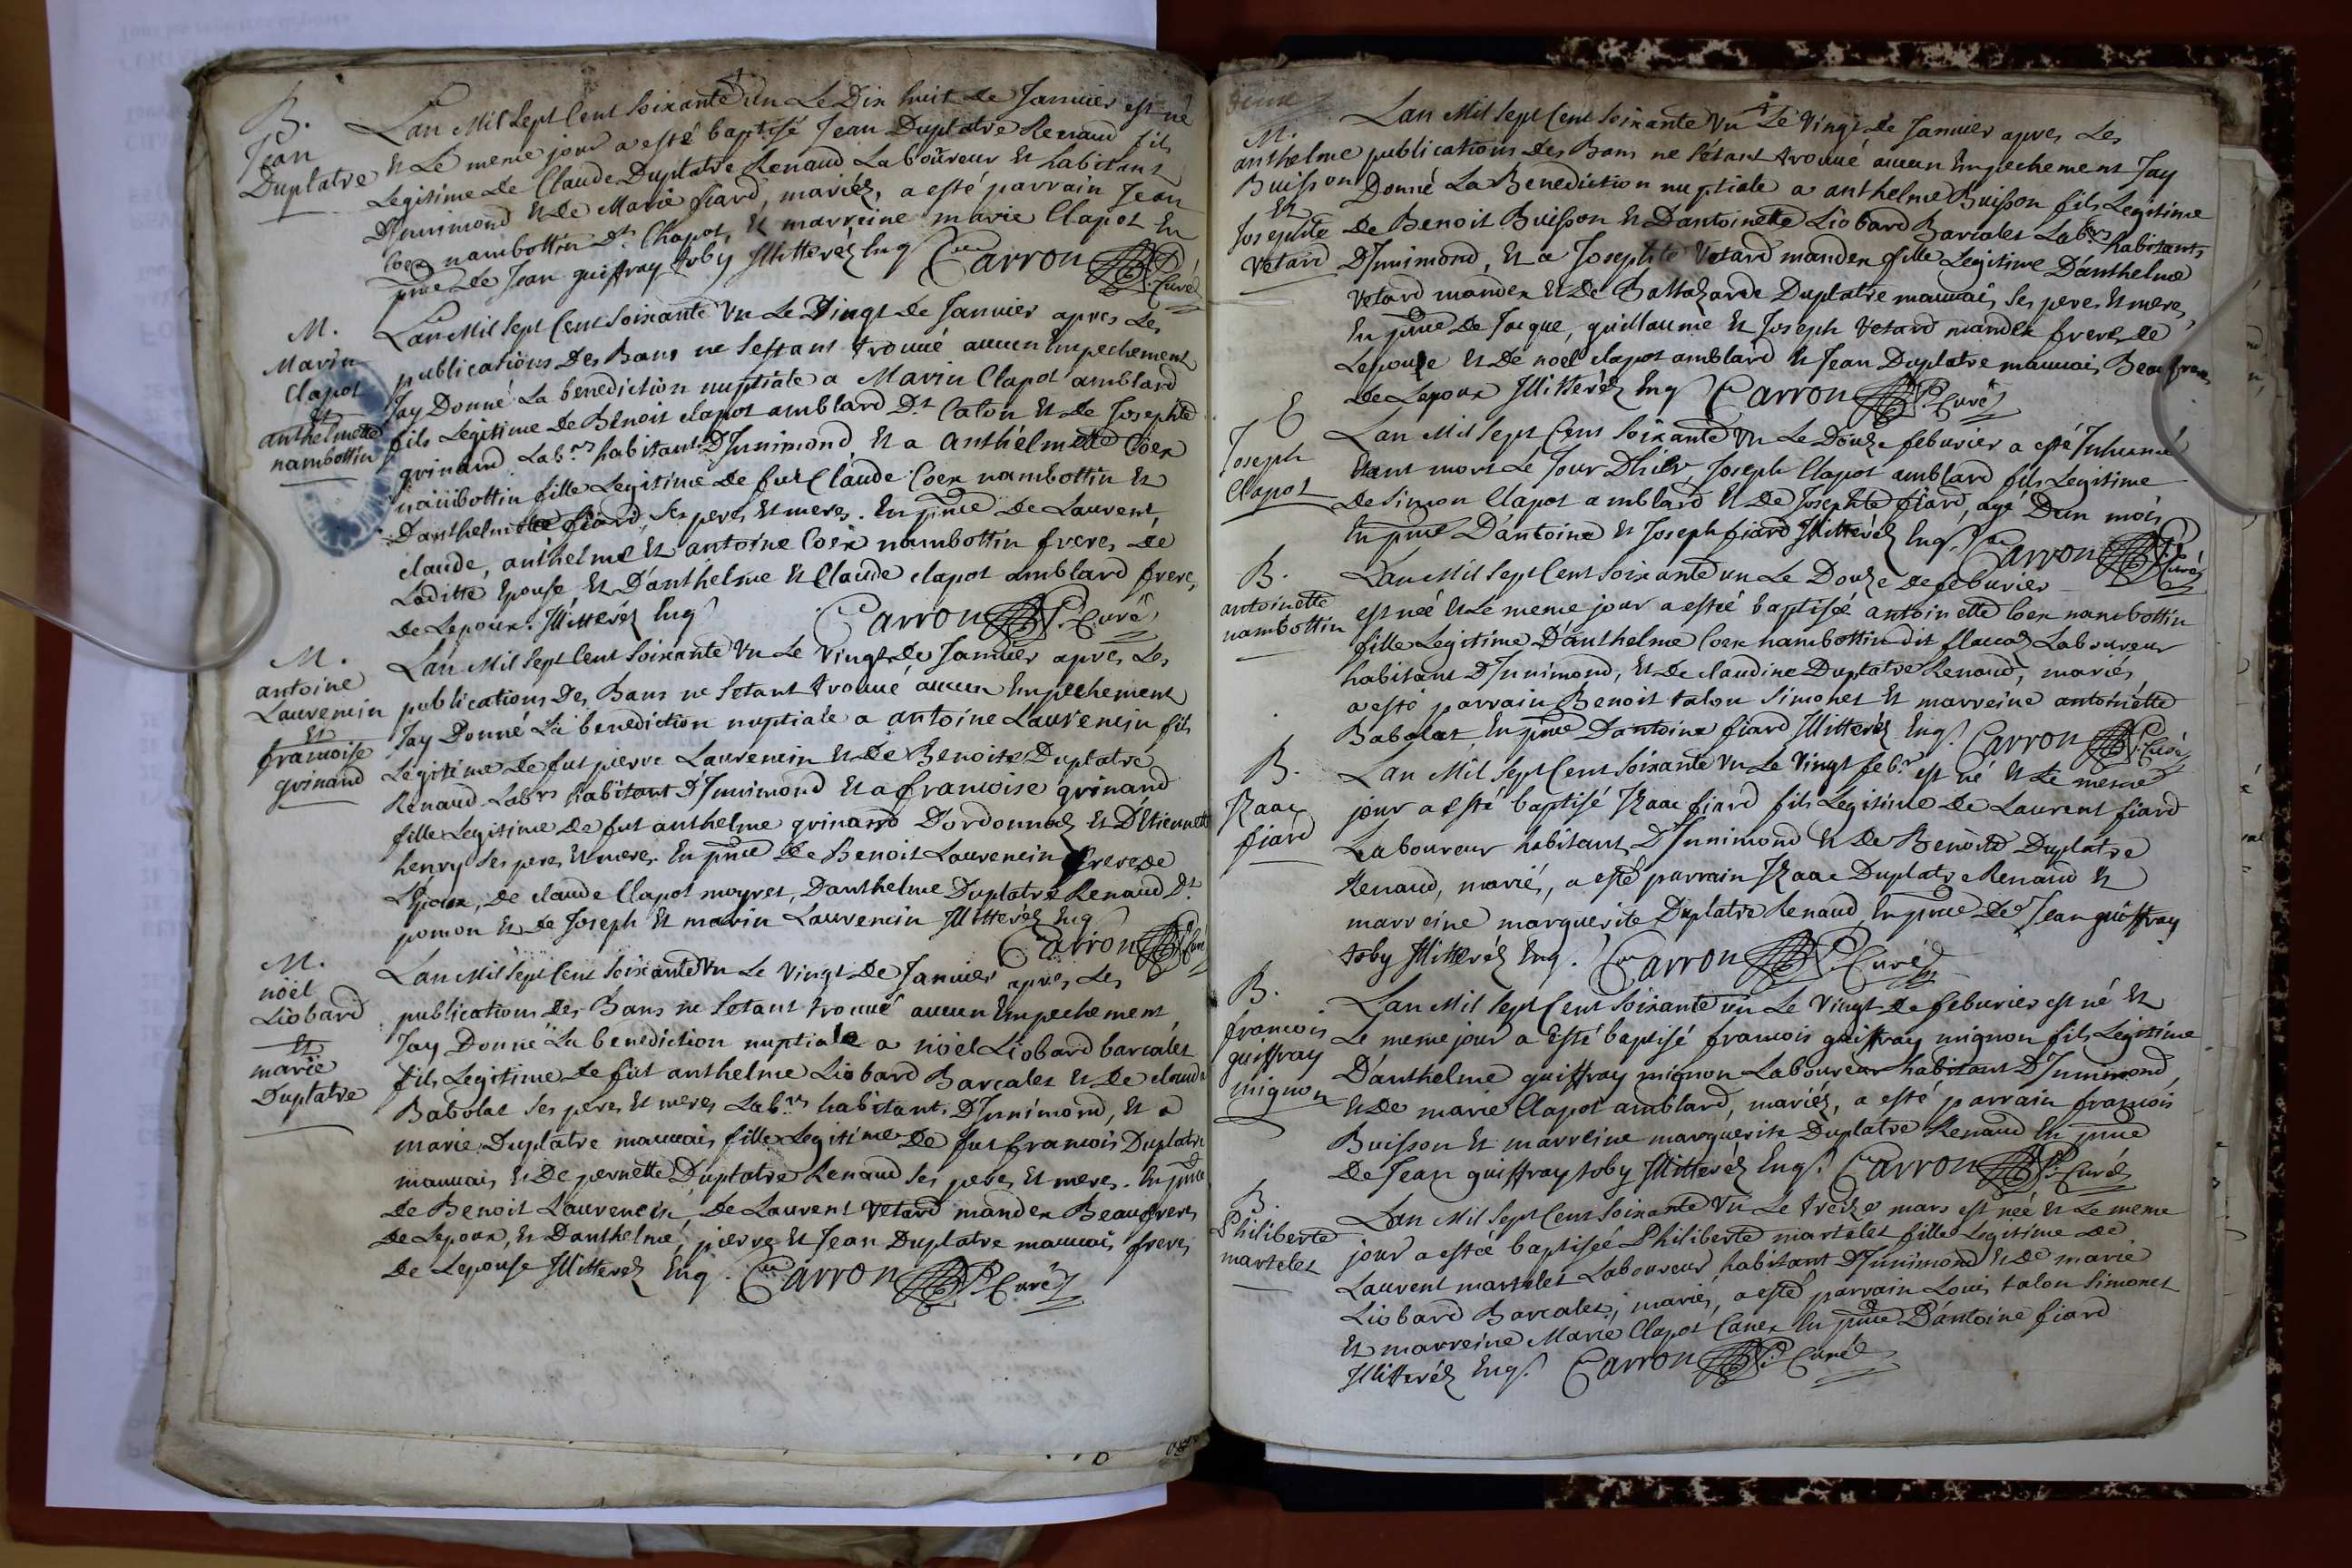 B.
Jean
Duplatre
Lan Mil Sept Cent Soixante Un Le Dix huit de Janvier est né
Et Le meme jour a esté baptisé Jean Duplatre Renaud fils
Legitime de Claude Duplatre Renaud Laboureur Et habitant
D'Innimond Et de Marie fiard, mariéz, a esté parrain Jean
Coex nambottin Dt Chapot, Et marreine marie Clapot En
pnce de Jean guiffray toby Illitteréz Enq Carron P. Curé
M.
Marin
Clapot
Et
anthelmette
nambottin
Lan Mil Sept Cent Soixante Vn Le Vingt de Janvier apres Les
publications Des Bans ne Sestant trouvé aucun Empechement
Jay Donné La benediction nuptiale a Marin Clapot amblard
fils Legitime de Benoit clapot amblard Dt Caton Et de Josephte
grinand Labrs habitants D'Innimond Et a anthelmette Coex
nambottin fille Legitime de fut Claude Coex nambottin Et
Danthelmette fiard, Ses peres Et meres. En pnce de Laurent,
claude, anthelme Et antoine Coex nambottin freres de
Laditte Epouse Et Danthelme Et Claude clapot amblard freres
de Lepoux. Illitteréz Enq Carron P. Curé
M.
antoine
Laurencin
Et
francoise
grinand
Lan Mil Sept Cent Soixante Vn Le Vingt de Janvier apres Les
publications Des Bans ne Setant trouvé aucun Empechement
Jay Donné La benediction nuptiale a antoine Laurencin fils
Legitime de fut pierre Laurencin Et de Benoite Duplatre
Renaud Labrs habitant D'Innimond Et a francoise grinand
fille Legitime de fut anthelme grinand D'ordonnaz Et D'Etiennette
henry Ses peres Et meres. En pnce de Benoit Laurencin frere de
Lepoux, de claude Clapot moyret, Danthelme Duplatre Renaud Dt
pomon Et de Joseph Et marin Laurencin Illitteréz Enq
Carron P. Curé
M.
noël
Liobard
Et
marie
Duplatre
Lan Mil Sept Cent Soixante Vn Le Vingt de Janvier apres Les
publications Des Bans ne Setant trouvé aucun Empechement
Jay Donné La benediction nuptiale a noël Liobard barcalet
fils Legitime de fut anthelme Liobard Barcalet Et de claude
Babolat Ses peres Et meres Labrs habitants D'Innimond, Et a
marie Duplatre mauvais fille Legitime de fut francois Duplatre
mauvais Et De pernette Duplatre Renaud Ses peres Et meres. En pnce
de Benoit Laurencin, de Laurent Vetard mandex Beaufreres
de Lepoux, Et Danthelme, pierre Et Jean Duplatre mauvais freres
de Lepouse Illitteréz Enq. Carron P. Curé
M.
anthelme
Buisson
Et
Josephte
Vetard
Lan Mil Sept Cent Soixante Vn Le Vingt de Janvier apres Les
publications Des Bans ne Sétant trouvé aucun Empechement Jay
Donné La Benediction nuptiale a anthelme Buisson fils Legitime
de Benoit Buisson Et Dantoinette Liobard Barcalet Labrs habitants
D'Innimond, Et a Josephte Vetard mandex fille Legitime D'anthelme
Vetard mandex Et De Baltazarde Duplatre mauvais Ses peres Et meres,
En pnce De Jacque, guillaume Et Joseph Vetard mandex freres de
Lepouse Et De noel clapot amblard Et Jean Duplatre mauvais Beaufreres
de Lepoux Illitteréz Enq Carron P. Curé
E
Joseph
Clapot
Lan Mil Sept Cent Soixante Vn Le Douze feburier a esté Inhumé
Etant mort Le Jour D'hier Joseph Clapot amblard fils Legitime
de Simon Clapot amblard Et De Josephte fiard, agé D'un mois
En pnce D'antoine Et Joseph fiard Illitteréz Enq. Carron P. Curé
B.
antoinette
nambottin
Lan Mil Sept Cent Soixante un Le Douze de feburier
est née Et Le meme jour a estée baptisée antoinette Coex nambottin
fille Legitime D'anthelme Coex nambottin dit flaccoz Laboureur
habitant D'Innimond, Et de claudine Duplatre Renaud, mariés,
a esté parrain Benoit talon Simonet Et marreine antoinette
Babolat, En pnce Dantoine fiard Illitteréz Enq. Carron P. Curé
B.
Izaac
fiard
Lan Mil Sept Cent Soixante Vn Le Vingt febr est né Et Le meme
jour a esté baptisé Izaac fiard fils Legitime de Laurent fiard
Laboureur habitant D'Innimond Et de Benoite Duplatre
Renaud, mariés, a esté parrain Izaac Duplatre Renaud Et
marreine marguerite Duplatre Renaud En pnce De Jean guiffray
toby Illitteréz Enq. Carron P. Curé
B.
francois
guiffray
mignon
Lan Mil Sept Cent Soixante un Le Vingt de feburier est né Et
Le meme jour a Esté baptisé francois guiffray mignon fils Legitime
D'anthelme guiffray mignon Laboureur habitant D'Innimond,
Et De marie Clapot amblard, mariéz, a esté parrain francois
Buisson Et marreine marguerite Duplatre Renaud En pnce
de Jean guiffray toby Illitteréz Enq. Carron P. Curé
B.
Philiberte
martelet
Lan Mil Sept Cent Soixante Vn Le treize mars est née Et Le meme
jour a estée baptisée Philiberte martelet fille Legitime de
Laurent martelet Laboureur habitant D'Innimond Et de marie
Liobard Barcalet, mariés, a esté parrain Louis talon Simonet
Et marreine Marie Clapot Canex En pnce D'antoine fiard
Illitteréz Enq. Carron P. Curé